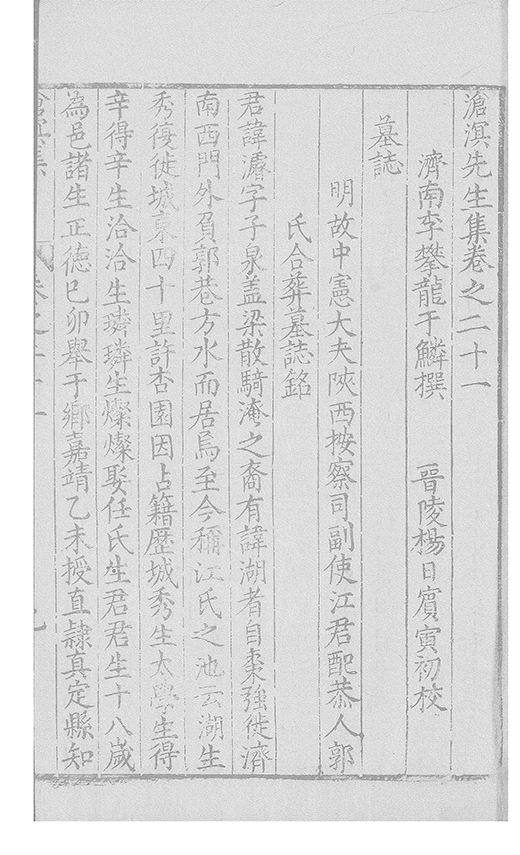 滄溟先生集卷之二十一
濟南李攀龍于鱗撰　晉陵楊日賓寅初校
墓誌
明故中憲大夫陝西按察司副使江君配恭人郭
氏合葬墓誌銘
君諱濬字子泉盖梁散騎淹之裔有諱湖者自棗強徙濟
南西門外負郭巷方水而居焉至今稱江氏之池云湖生
秀復徙城東四十里許杏園因占籍歷城秀生太學生得
辛得辛生洽洽生璘璘生燦燦娶任氏生君君生十八歲
為邑諸生正德巳卯舉于鄉嘉靖乙未授直隷真定縣知